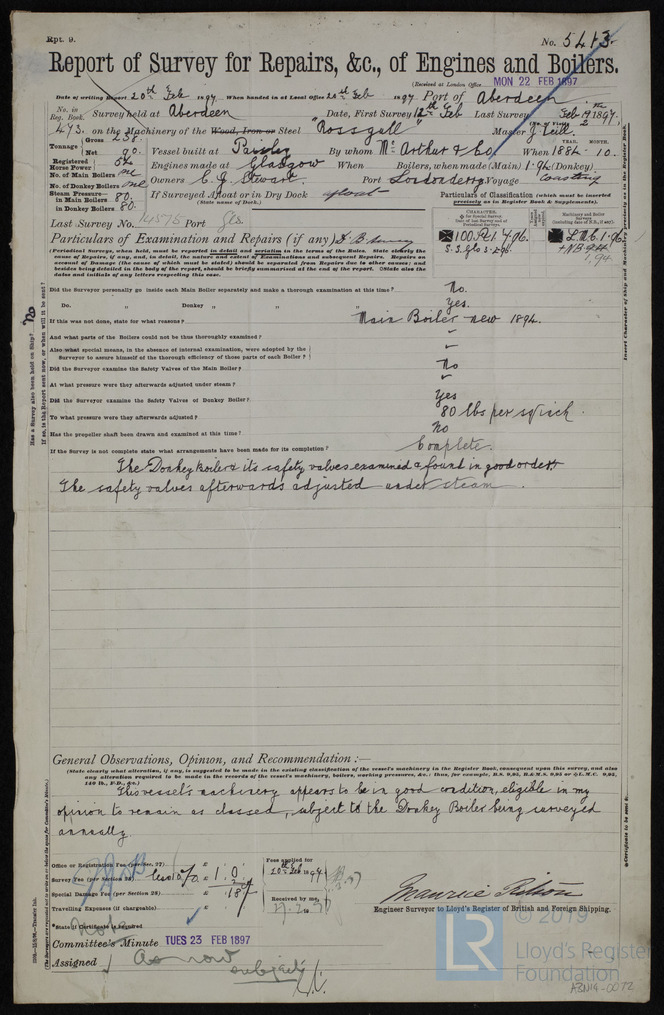 Rpt. 9.
No. 5413.
Report of Survey for Repairs, &c., of Engines and Boilers.
(Received at London Office MON 22 FEB 1897
Date of writing Report 20th Feb 1897 When handed in at Local Office 20th Feb 1897 Port of Aberdeen
No. in Reg. Book. Survey held at Aberdeen Date, First Survey 12th Feb Last Survey Feb 19th 1897
473. on the Machinery of the Wood, Iron or Steel "Rossgull" Master J. Teill
Tonnage Gross 258. Net 90. Vessel built at Paisley By whom Mc Arthur & Co When 1884 - 10.
Registered Horse Power 52 Engines made at Glasgow When Boilers, when made (Main) 1.94 (Donkey)
No. of Main Boilers one Owners C. G. Stewart. Port Londonderry Voyage Coasting
No. of Donkey Boilers one
Steam Pressure in Main Boilers 80. If Surveyed Afloat or in Dry Dock afloat
in Donkey Boilers 80. (State name of Dock.)
Particulars of Classification (which must be inserted precisely as in Register Book & Supplements).
Last Survey No. 14575 Port Gls.
100A1 4.96.
S.S. Gls 3-2.96
L.M.C 1.96
+ N.B. 1,94
Particulars of Examination and Repairs (if any) D. B. Survey
(Periodical Surveys, when held, must be reported in detail and seriatim in the terms of the Rules. State clearly the
cause of Repairs, if any, and, in detail, the nature and extent of Examinations and subsequent Repairs. Repairs on
account of Damage (the cause of which must be stated) should be separated from Repairs due to other causes; and
besides being detailed in the body of the report, should be briefly summarised at the end of the report. State also the
dates and initials of any letters respecting this case.
Did the Surveyor personally go inside each Main Boiler separately and make a thorough examination at this time? No.
Do. " Donkey " " " Yes.
If this was not done, state for what reasons? Main Boiler new 1894.
And what parts of the Boilers could not be thus thoroughly examined? "
Also what special means, in the absence of internal examination, were adopted by the
Surveyor to assure himself of the thorough efficiency of those parts of each Boiler? "
Did the Surveyor examine the Safety Valves of the Main Boiler? No
At what pressure were they afterwards adjusted under steam? "
Did the Surveyor examine the Safety Valves of Donkey Boiler? Yes
To what pressure were they afterwards adjusted? 80 lbs per sq inch.
Has the propeller shaft been drawn and examined at this time? No
If the Survey is not complete state what arrangements have been made for its completion? Complete.
The Donkey boiler & its safety valves examined & found in good order &
The safety valves afterwards adjusted under steam.
Has a Survey also been held on Ship? No
If so, is the Report sent now, or when will it be sent?
Insert Character of Ship and Machinery precisely as in the Register Book.
General Observations, Opinion, and Recommendation:—
(State clearly what alteration, if any, is suggested to be made in the existing classification of the vessel's machinery in the Register Book, consequent upon this survey, and also
any alteration required to be made in the records of the vessel's machinery, boilers, working pressures, &c.: thus, for example, B.S. 9,95, B.&M.S. 9,95 or L.M.C. 9,95,
140 lb., F.D., &c.)
This vessel's machinery appears to be in good condition, eligible in my
opinion to remain as classed, subject to the Donkey Boiler being surveyed
annually.
Office or Registration Fee (per Sec. 27) £
Survey Fee (per Section 28) Less 10% £ 1 . 0 .
Special Damage Fee (per Section 28) £ 18/
Travelling Expenses (if chargeable) £
Fees applied for 20th Feb 1897
Received by me,
State if Certificate is required
Engineer Surveyor to Lloyd's Register of British and Foreign Shipping.
Committee's Minute TUES 23 FEB 1897
Assigned As now
subject
LR
© 2019
Lloyd's Register
Foundation
ABN14-0072